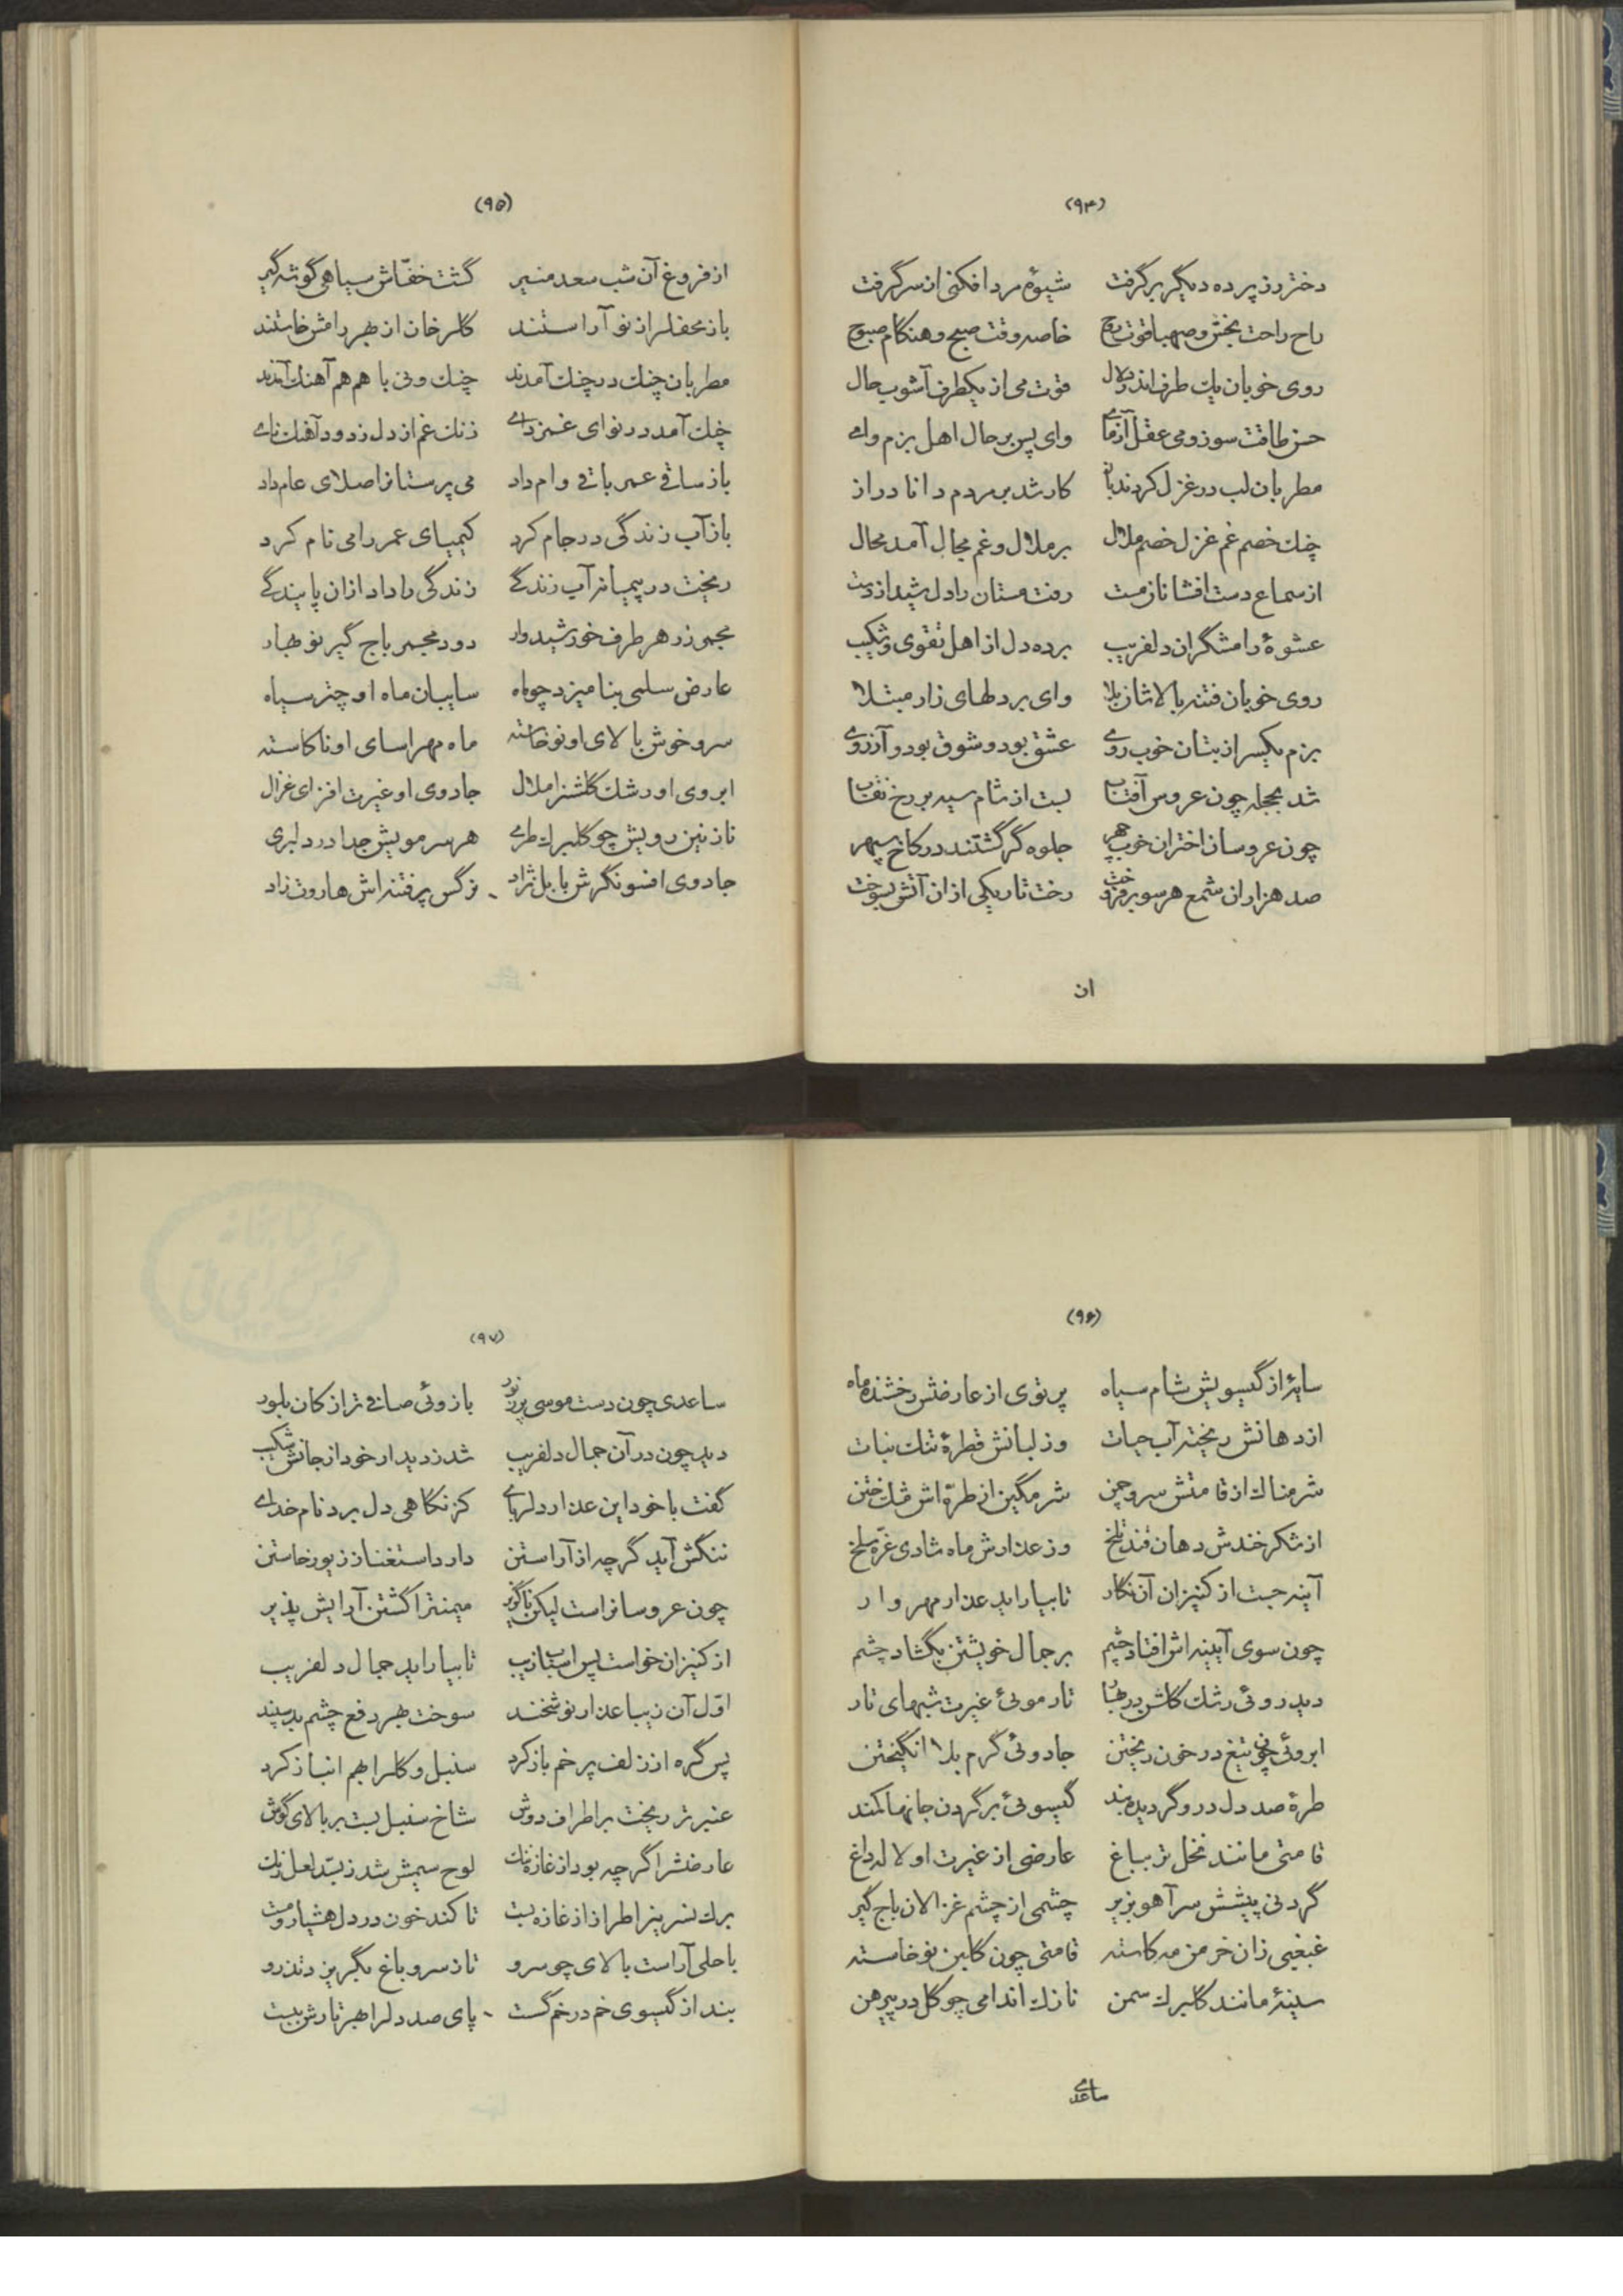 (۹۴)
دختر رز پرده دیگر برگرفت شیوهٔ مرد افکنی از سر گرفت
راح راحت بخش و صهبا قوت روح خاصه وقت صبح و هنگام صبوح
روی خوبان یک طرف اندر دلال قوّت می از یکطرف آشوب حال
حسن طاقت سوز و می عقل آزمای وای پس بر حال اهل بزم وای
مطربان لب در غزل کردند باز کار شد بر مردم دانا دراز
چنک خصم غم غزل خصم ملال بر ملال و غم مجال آمد محال
از سماع دست افشانان مست رفت مستان را دل شیدا ز دست
عشوهٔ رامشگران دلفریب برده دل از اهل تقوی و شکیب
روی خوبان فتنه بالاشان بلا وای بر دلهای زار مبتلا
بزم یکسر از بتان خوب روی عشق بود و شوق بود و آرزوی
شد بحجله چون عروس آفتاب بست از شام سیه بر رخ نقاب
چون عروسان اختران خوب چهر جلوه گر گشتند در کاخ سپهر
صد هزاران شمع هر سو برفروخت رخت تاریکی از ان آتش بسوخت
از
(۹۵)
از فروغ آن شب سعد منیر گشت خفّاش سیاهی گوشه گیر
باز محفل از نو آراستند گلرخان از بهر رامش خاستند
مطربان چنک در چنک آمدند چنک و نی با هم هم آهنک آمدند
چنک آمد در نوای غمزدای زنک غم از دل زدود آهنک نای
باز ساقی عمر باقی وام داد می پرستانرا صلای عام داد
باز آب زندگی در جام کرد کیمیای عمر را می نام کرد
ریخت در پیمانه آب زندگی زندگی را داد از ان پایندگی
مجمر زر هر طرف خورشیدوار دود مجمر باج گیر نو بهار
عارض سلمی بنامیزد چو ماه سایبان ماه او چتر سیاه
سرو خوش بالای او نو خاسته ماه مهر اسای او ناکاسته
ابروی او رشک گلشن را ملال جادوی او غیرت افزای غزال
نازنین رویش چو گلبرک طری هر سر مویش جدا در دلبری
جادوی افسونگرش بابل نژاد نرگس پر فتنه اش هاروت زاد
(۹۶)
سایهٔ از گیسویش شام سیاه پرتوی از عارضش رخشنده ماه
از دهانش ریخته آب حیات وز لبانش قطرهٔ تنک نبات
شرمناک از قامتش سرو چمن شرمگین از طرّه اش مشک ختن
از شکر خندش دهان قند تلخ وز عذارش ماه شادی غرّه سلخ
آینه جست از کنیزان آن نگار تا بیاراید عذار مهر وار
چون سوی آیینه اش افتاد چشم بر جمال خویشتن بگشاد چشم
دید روئی رشک گلشن در بهار تار موئی غیرت شبهای تار
ابروئی چون تیغ در خون ریختن جادوئی گرم بلا انگیختن
طرهٔ صد دل در و گردیده بند گیسوئی بر گردن جانها کمند
قامتی مانند نخل تر بباغ عارضی از غیرت او لاله داغ
گردنی پیشش سر آهو بزیر چشمی از چشم غزالان باج گیر
غبغبی زان خرمن مه کاسته قامتی چون گلبن نو خاسته
سینهٔ مانند گلبرک سمن نازک اندامی چو گل در پیرهن
ساعدی
(۹۷)
ساعدی چون دست موسی پر ز نور بازوئی صافی تر از کان بلور
دید چون در آن جمال دلفریب شد ز دیدار خود از جانش شکیب
گفت با خود این عذار دلربای کز نگاهی دل برد نام خدای
ننگش آید گر چه از آراستن دارد استغنا ز زیور خاستن
چون عروسانراست لیکن ناگزیر میمنت را گشتن آرایش پذیر
از کنیزان خواست پس اسباب زیب تا بیاراید جمال دلفریب
اوّل آن زیبا عذار نوشخند سوخت بهر دفع چشم بد سپند
پس گره از زلف پر خم باز کرد سنبل و گل را بهم انباز کرد
عنبر تر ریخت بر اطراف دوش شاخ سنبل بست بر بالای گوش
عارضش را گرچه بود از غازه ننک لوح سیمش شد ز بسّد لعل رنک
برک نسرین را طراز از غازه بست تا کند خون در دل هشیار و مست
با حلی آراست بالای چو سرو تا ز سرو باغ بگریزد تذرو
بند از گیسوی خم در خم گسست پای صد دل را بهر تارش ببست